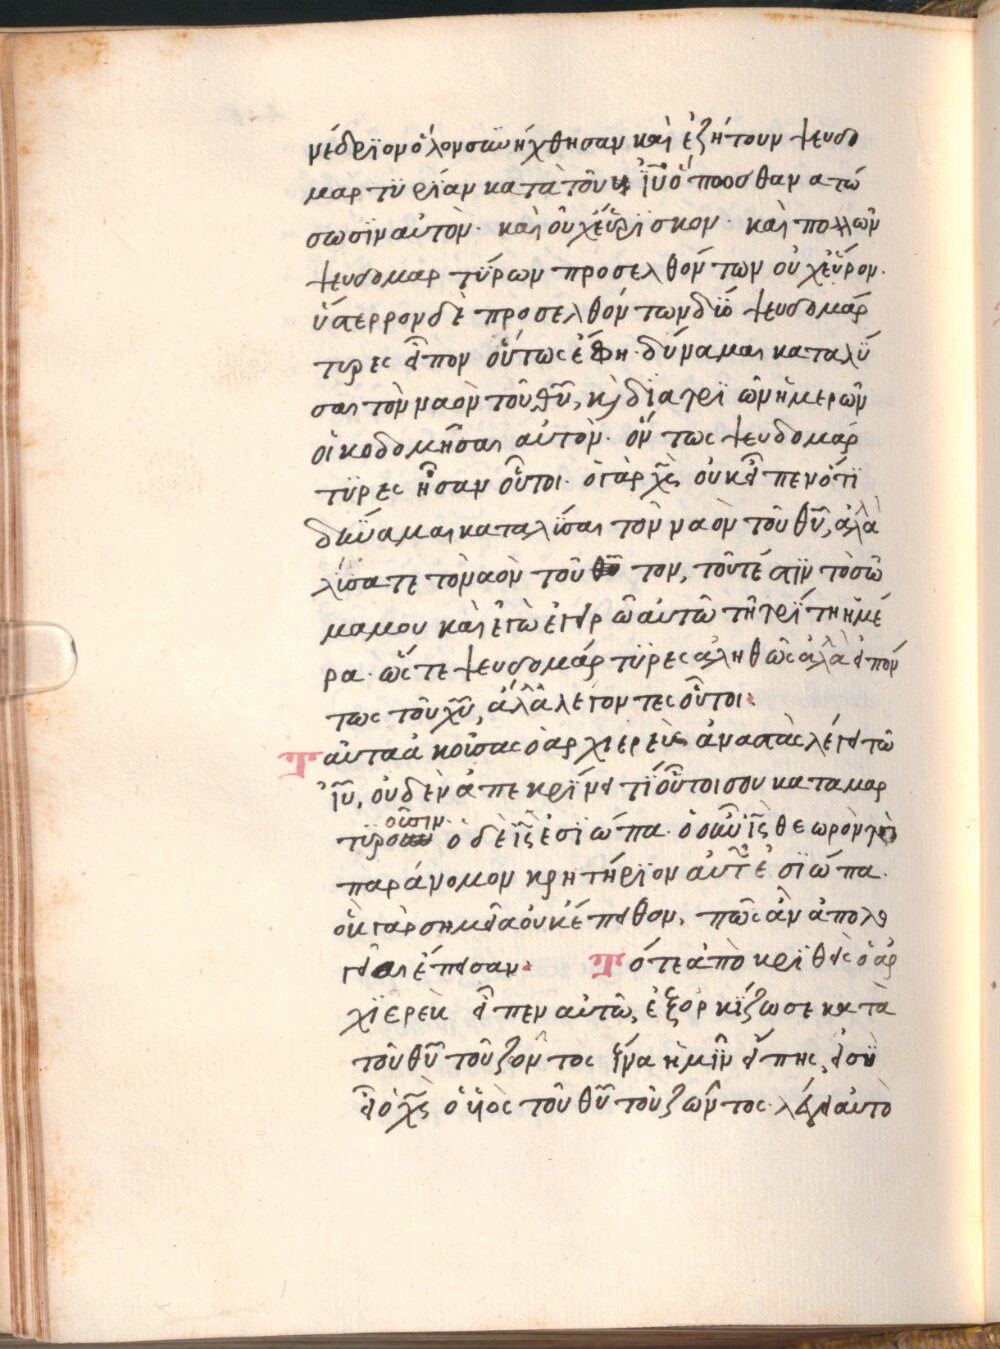 νέδρϊον ὅλον σαϋνήχθησαν καὶ ἐζήτουν ψευδο
μαρτϋρϊαν κατὰ τοῦ ἰῦ ὅπποσθαν ατώ
σωσϊν αὐτὸν· καὶ οὐχ εὕρϊσκον· καὶ πολλῶν
ψευδομαρτϋρων προσελθόντων οὐχ εὗρον·
ὕστερρον δὲ προσελθόντων δϊό ψευδομάρ
τυρες εἶπον οὕτως ἔφη· δύναμαι καταλϋ
σαι τὸν ναὸν τοῦ θῦ, κὶ δϊα τρϊῶν ἡμερῶν
οἰκοδομῆσαι αὐτόν· ὄντως ψευδομάρ
τϋρες ἦσαν οὗτοι· ὁ γὰρ χς οὐκ εἶπεν ὅτϊ
δϋναμαι καταλϊσαι τὸν ναὸν τοῦ θῦ, ἀλλὰ
λϊσατε τὸ ναὸν τοῦτον, τοῦτέστϊν τὸ σῶ
μα μου καὶ ἐγὼ ἐγερῶ αὐτῶ τῆ τρϊτη ἡμέ
ρα· ὥστε ψευδομάρτϋρες ἀληθῶς ἀλλὰ εἰπόν
τως τοῦ χῦ, ἄλλα λέγοντες οὗτοι·
Ταῦτα ἀκοῦσας ὁ αρχιερεὺς ἀναστὰς λέγει τῶ
ἰῦ, οὐδὲν ἀπεκρϊνει τϊ οὗτοι σου καταμαρ
τϋροῦσιν· ὁ δὲ ἰς ἐσϊώπα· ὁ οὖν ἰς θεωρὸν τὸ
παράνομον κρητήρϊον αὐτοῦ ἐσϊώπα·
οὓς γὰρ σημεῖα οὐκ ἔπειθον, πῶς ἂν ἀπολο
γεῖαι ἔπεισαν· Τότε ἀπὸκρϊθεὶς ὁ ἀρ
χϊερεὺς εἶπεν αὐτῶ, ἐξορκϊζω σε κατὰ
τοῦ θῦ τοῦ ζοντος ἵνα ἡμῖν εἴπης, εἰ σὺ
εἶ ὁ χς ὁ ὑϊὸς τοῦ θῦ τοῦ ζῶντος· λέγει αὐτὸ